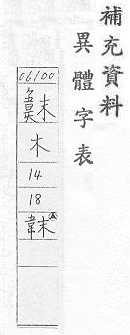 補充資料
異體字表
06100
木
14
18
韎